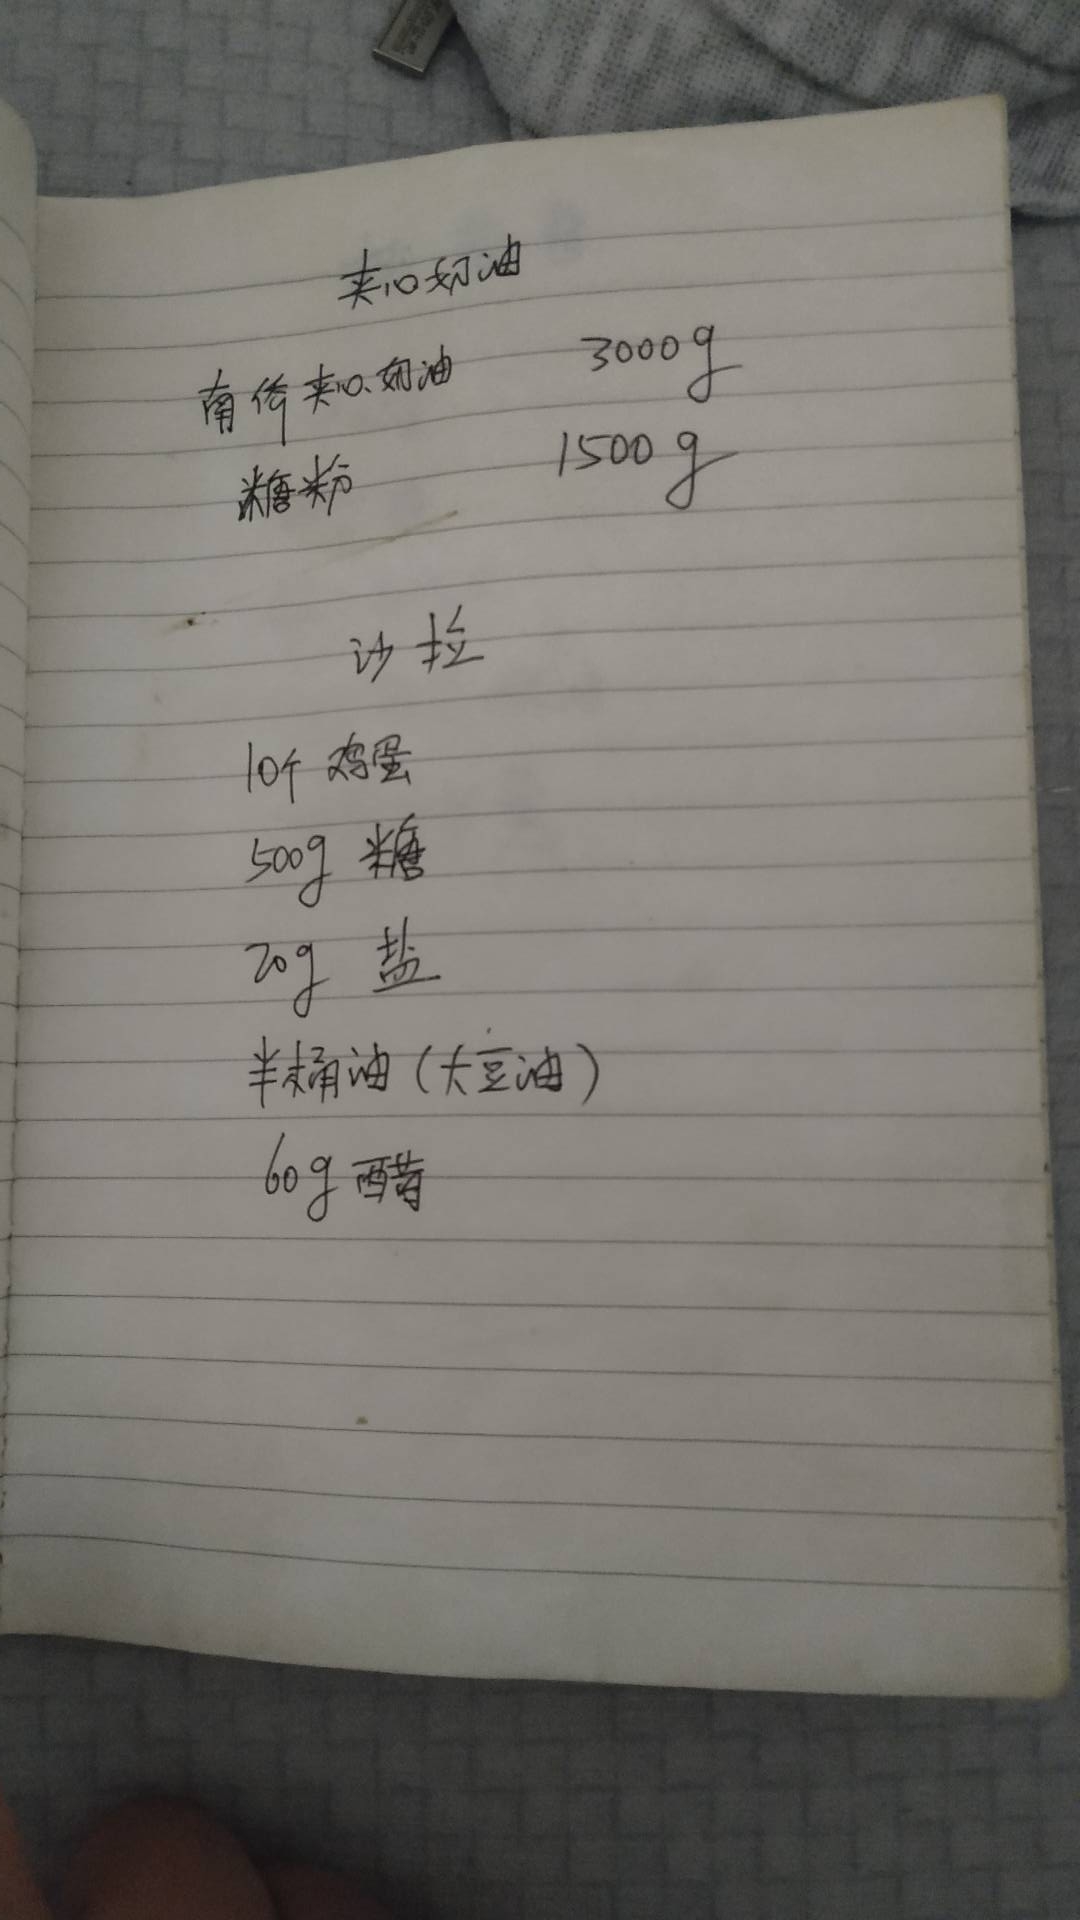 夹心奶油
南侨夹心奶油 3000g
糖粉 1500g
沙拉
10个鸡蛋
500g 糖
20g 盐
半桶油(大豆油)
60g 醋